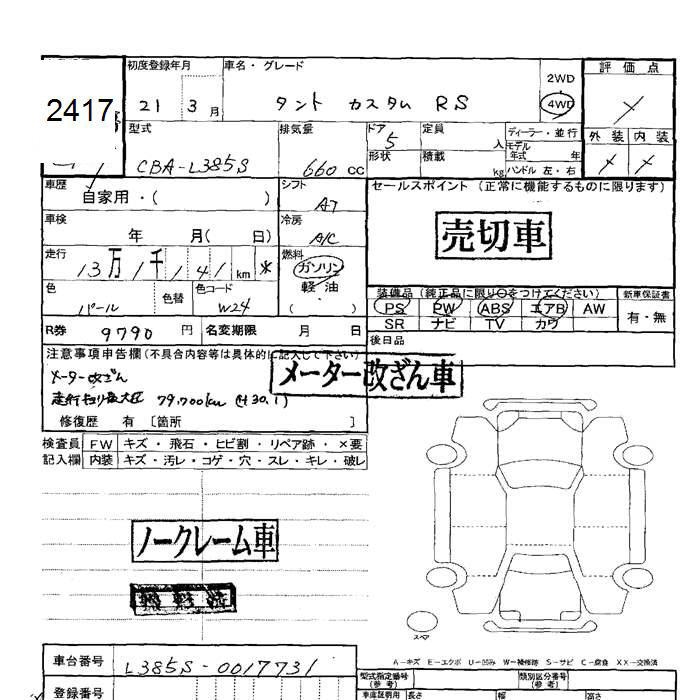 2417
初度登録年月 車名・グレード 2WD 評価点
21 3月 タント カスタム RS 4WD ×
型式 排気量 ドア 定員 ディーラー・並行 外装 内装
CBA-L385S 660 CC 5 人 モデル年式 年 × ×
形状 積載 kg ハンドル 左・右
車歴 シフト セールスポイント (正常に機能するものに限ります)
自家用・( ) AT
車検 冷房 売切車
年 月( 日) A/C
走行 燃料
13万1千141 km * ガソリン
軽油
( ・ )
色 色替 色コード 装備品 (純正品に限り○をつけてください) 新車保証書
パール W24 PS PW ABS エアB AW 有・無
SR ナビ TV カワ
R券 9790 円 名変期限 月 日 後日品
注意事項申告欄(不具合内容等は具体的に記入して下さい)
メーター改ざん メーター改ざん車
79,700km (H30.1)
修復歴 有 [箇所 ]
検査員 FW キズ・飛石・ヒビ割・リペア跡・×要
記入欄 内装 キズ・汚レ・コゲ・穴・スレ・キレ・破レ
ノークレーム車
スペア
A-キズ E-エクボ U-凹み W-補修跡 S-サビ C-腐食 XX-交換済
車台番号 L385S-0017731
型式指定番号 (参考) 類別区分番号 (参考)
登録番号 車庫証明用 長さ 幅 高さ